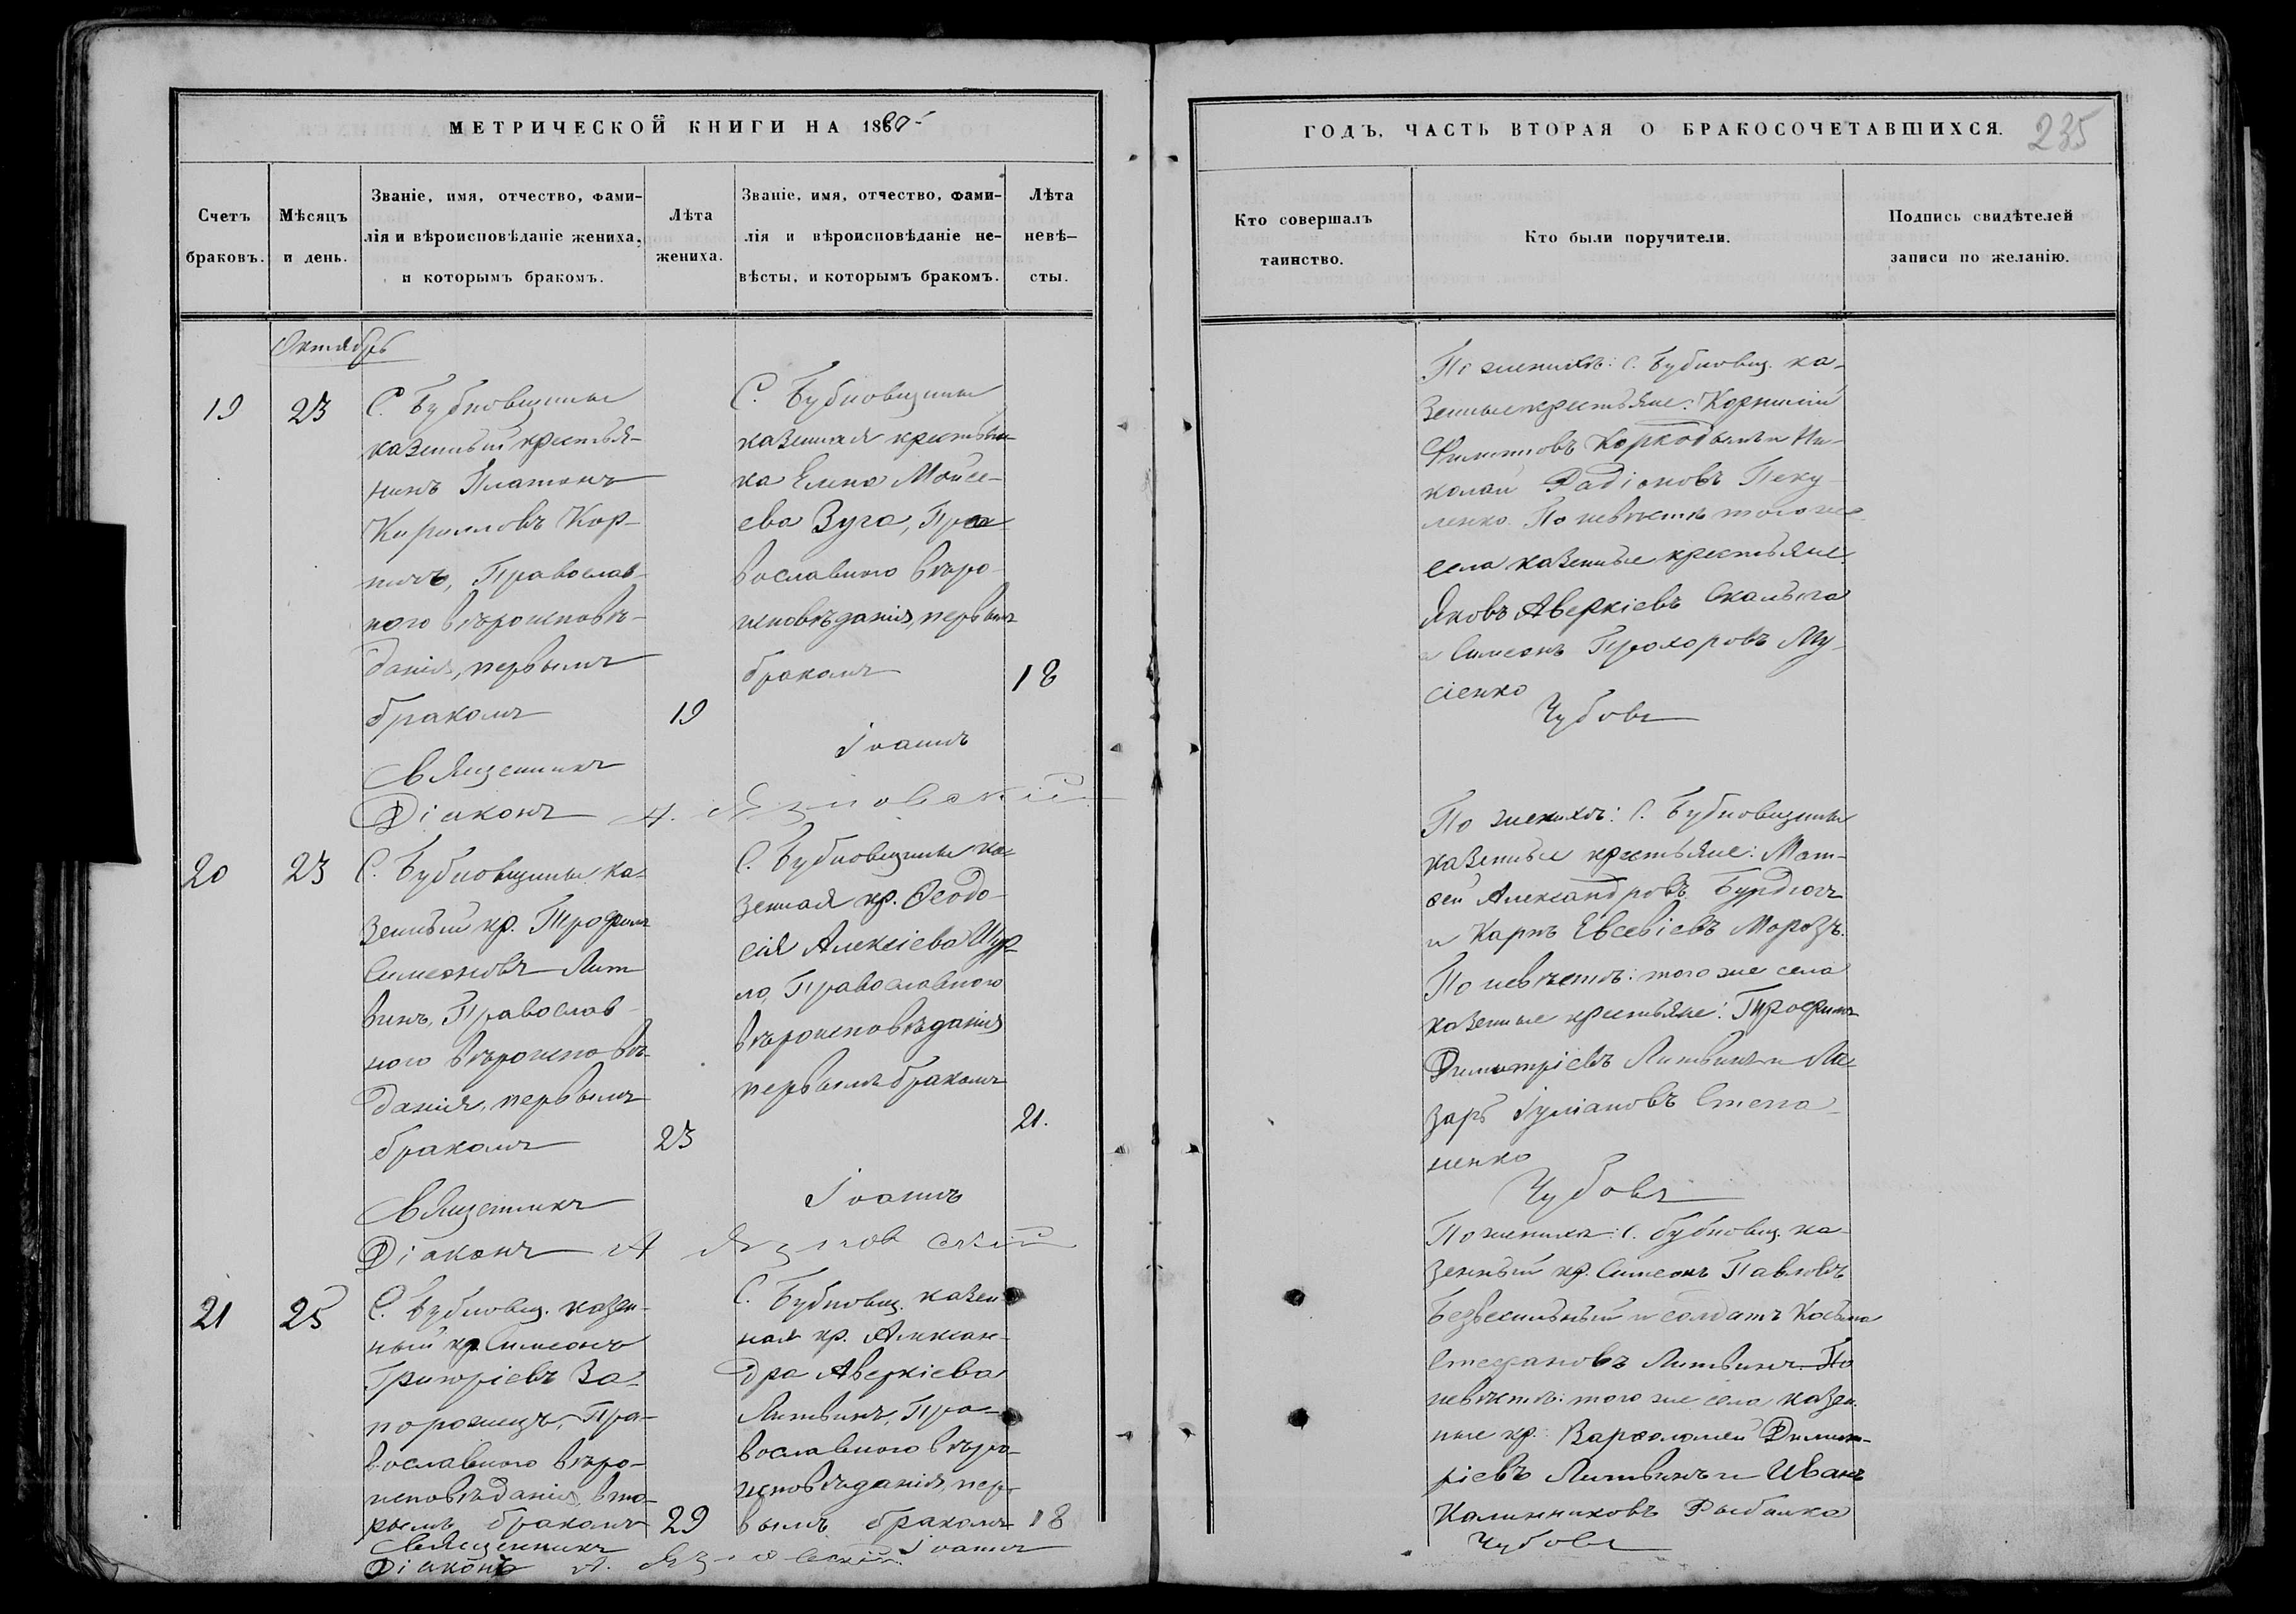 МЕТРИЧЕСКОЙ КНИГИ НА 1860
ГОДЪ, ЧАСТЬ ВТОРАЯ О БРАКОСОЧЕТАВШИХСЯ.
235
Счетъ
браковъ.
Мѣсяцъ
и день.
Званіе, имя, отчество, фами-
лія и вѣроисповѣданіе жениха,
и которымъ бракомъ.
Лѣта
жениха.
Званіе, имя, отчество, фами-
лія и вѣроисповѣданіе не-
вѣсты, и которымъ бракомъ.
Лѣта
невѣ-
сты.
Кто совершалъ
таинство.
Кто были поручители.
Подпись свидѣтелей
записи по желанію.
Октябрь
19
23
С. Бубновщины
казенный крестья-
нинъ Платонъ
Кириловъ Кор-
Православ-
ного вѣроисповѣ-
данія, первымъ
бракомъ
19
С. Бубновщины
казенная крестьян-
ка Елена Мойсе-
ева Зуга, Пра
вославного вѣро
исповѣданія, первымъ
бракомъ
18
По женихѣ: С. Бубновщ. ка-
зенные крестьяне: Корнилій
Филиповъ и Ни-
колай Радіоновъ Пеку-
ленко. По невѣстѣ того же
села казенные крестьяне
Яковъ Аверкіевъ Скалыга
и Симеонъ Прохоровъ Му-
сіенко
Священникъ Іоаннъ Чубовъ
Діаконъ А. Язловскій
20
23
С. Бубновщины ка-
зенный кр. Трофимъ
Симеоновъ Лит
винъ, Православ-
ного вѣроисповѣ-
данія, первымъ
бракомъ
23
С. Бубновщины ка-
зенная кр. Феодо-
сія Алексіева Шур-
ло, Православного
вѣроисповѣданія
первымъ бракомъ
21.
По женихѣ: С. Бубновщины
казенные крестьяне: Мат-
ѳей Александровъ Бурдюгъ
и Карпъ Евсевіевъ Морозъ.
По невѣстѣ: того же села
казенные крестьяне: Трофимъ
Димитріевъ Литвинъ и Ла-
заръ Іуліановъ Степа-
ненко
Священникъ Іоаннъ Чубовъ
Діаконъ А Язловскій
21
25
С. Бубновщ. казен-
ный кр. Симеонъ
Григоріевъ За-
порожецъ, Пра-
вославного вѣро-
исповѣданія, вто-
рымъ бракомъ
29
С. Бубновщ. казен
ная кр. Алексан-
дра Аверкіева
Литвинъ, Пра-
вославного вѣро-
исповѣданія, пер-
вымъ бракомъ
18
По жениха: С. Бубновщ. ка-
зенный кр. Симеонъ Павловъ
и солдатъ Косьма
Стефановъ Литвинъ. По
невѣстѣ: того же села казен.
ные кр: Варѳоломей Димит-
ріевъ Литвинъ и Иванъ
Калинниковъ Рыбалка
Священникъ Іоаннъ Чубовъ
Діаконъ А. Язловскій